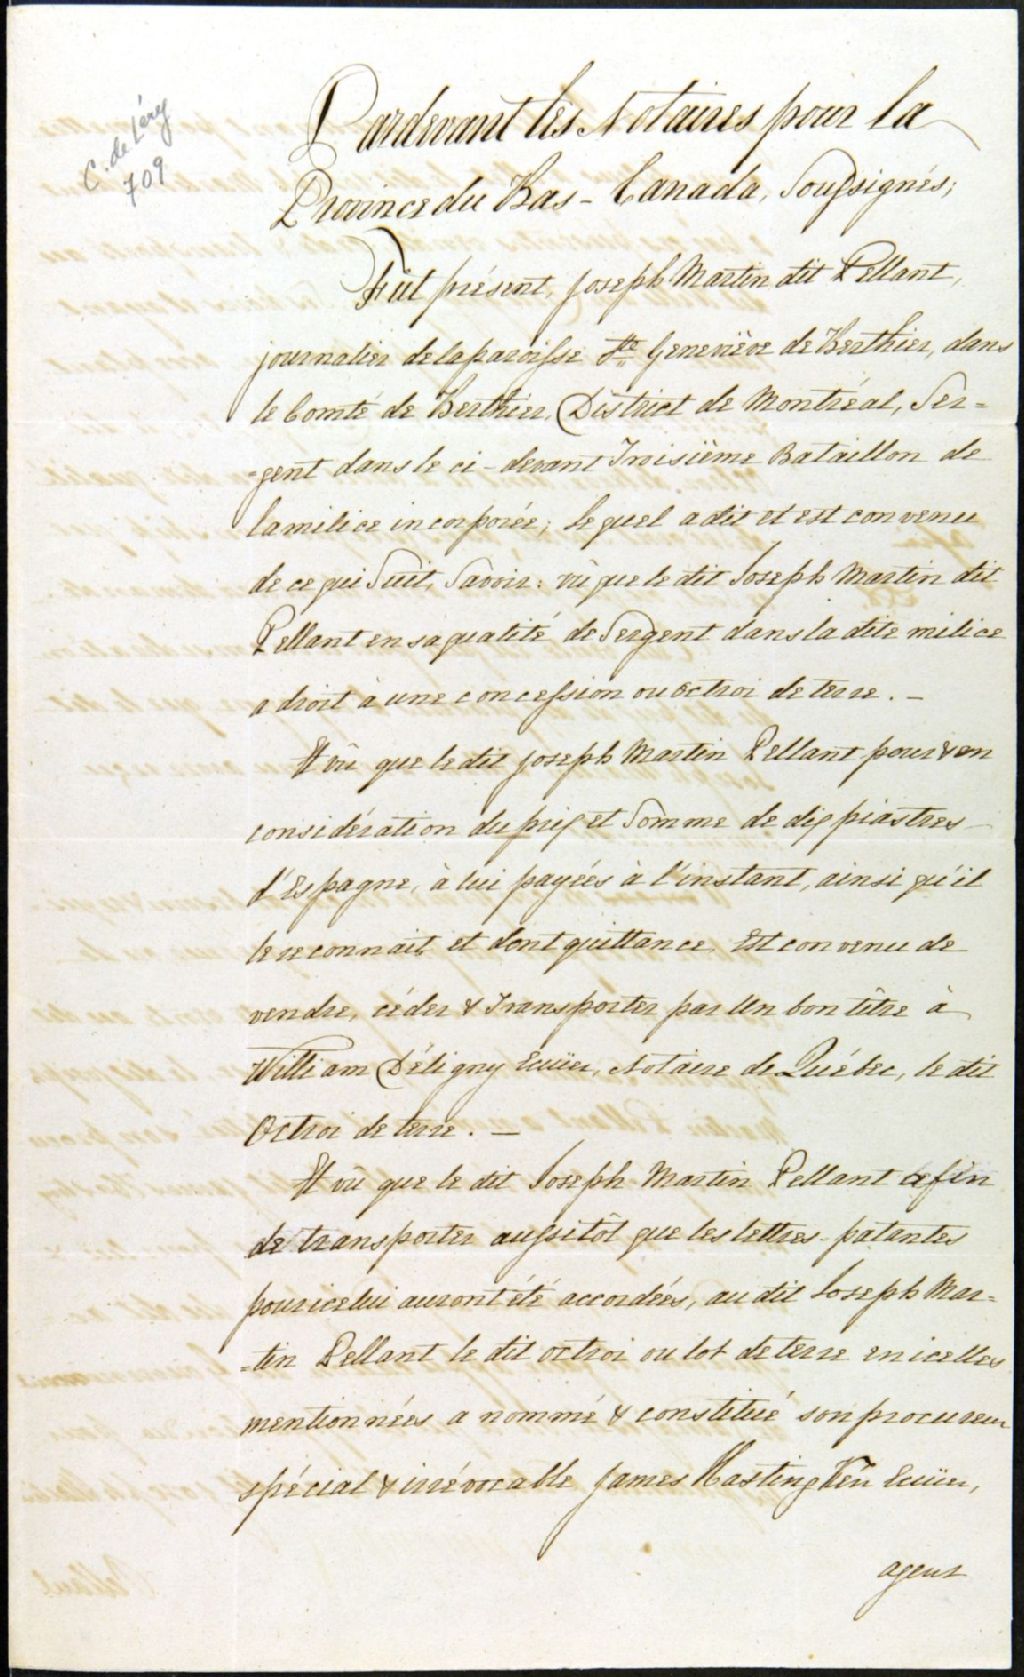 C. de Léry
709
Pardevant les Notaires pour la
Province du Bas-Canada, Soussignés;
Fut présent, Joseph Martin dit Pellant,
journalier de la paroisse Ste. Geneviève de Berthier, dans
le Comté de Berthier, District de Montréal, Ser-
-gent dans le ci-devant Troisième Bataillon de
la milice incorporée; lequel a dit et est convenu
de ce qui Suit, Savoir: vû que le dit Joseph Martin dit
Pellant en sa qualité de Sergent dans la dite milice
a droit à une concession ou octroi de terre. —
Et vû que le dit Joseph Martin Pellant pour & en
considération du prix et Somme de dix piastres
d'Espagne, à lui payées à l'instant, ainsi qu'il
le reconnait et dont quittance, Est convenu de
vendre, céder & Transporter par Un bon titre à
William Détigny Ecuïer, Notaire de Québec, le dit
Octroi de terre. —
Et vû que le dit Joseph Martin Pellant afin
de transporter aussitôt que les lettres-patantes
pour icelui auront été accordées, au dit Joseph Mar-
-tin Pellant le dit octroi ou lot de terre en icelles
mentionnées a nommé & constitué son procureur
spécial & irrévocable James Hasting Ecuïer,
agent